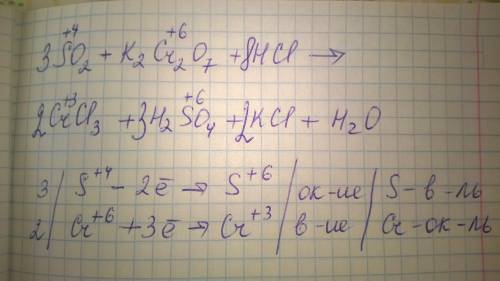 3S⁺⁴O₂ + K₂Cr⁺⁶₂O₇ + 8HCl →
2Cr⁺³Cl₃ + 3H₂S⁺⁶O₄ + 2KCl + H₂O
3 | S⁺⁴ - 2ē → S⁺⁶ | ок-ие | S-в-ль
2 | Cr⁺⁶ + 3ē → Cr⁺³ | в-ие | Cr-ок-ль